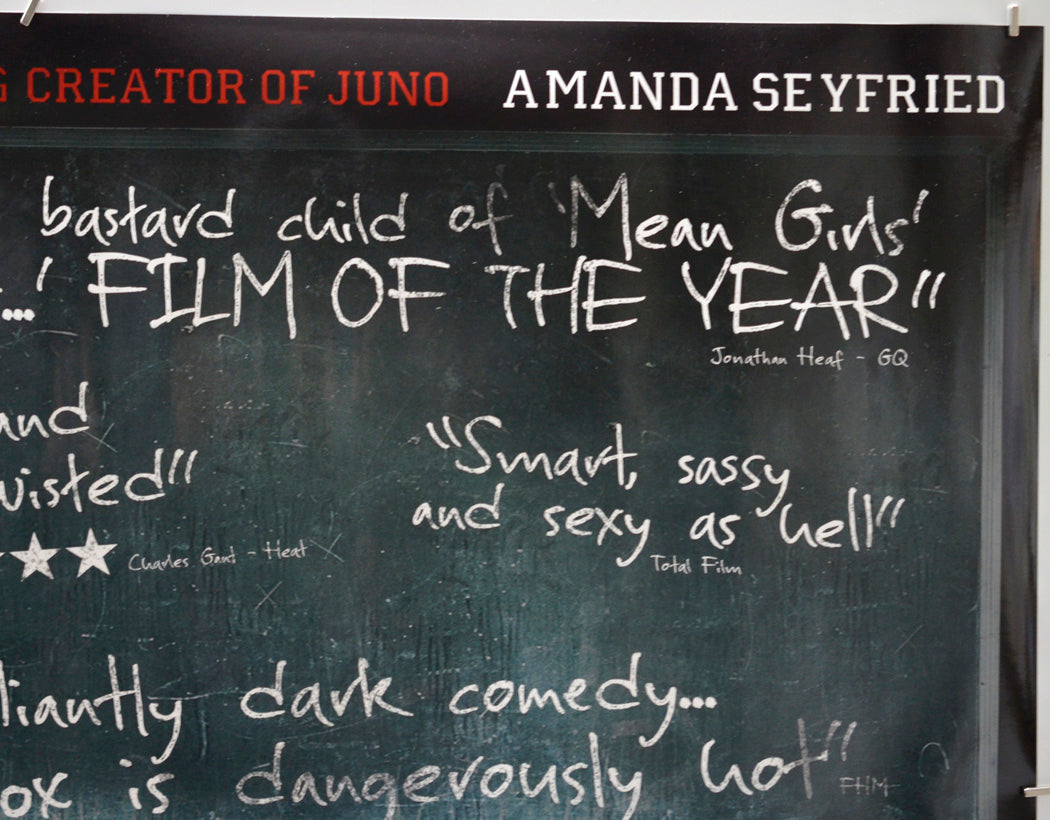 G CREATOR OF JUNO AMANDA SEYFRIED
bastard child of 'Mean Girls'
...' FILM OF THE YEAR"
Jonathan Heaf - GQ
and
wisted"
"Smart, sassy
and sexy as hell"
★★ Charles Gant - Heat
Total Film
liantly dark comedy...
ox is dangerously hot"
FHM